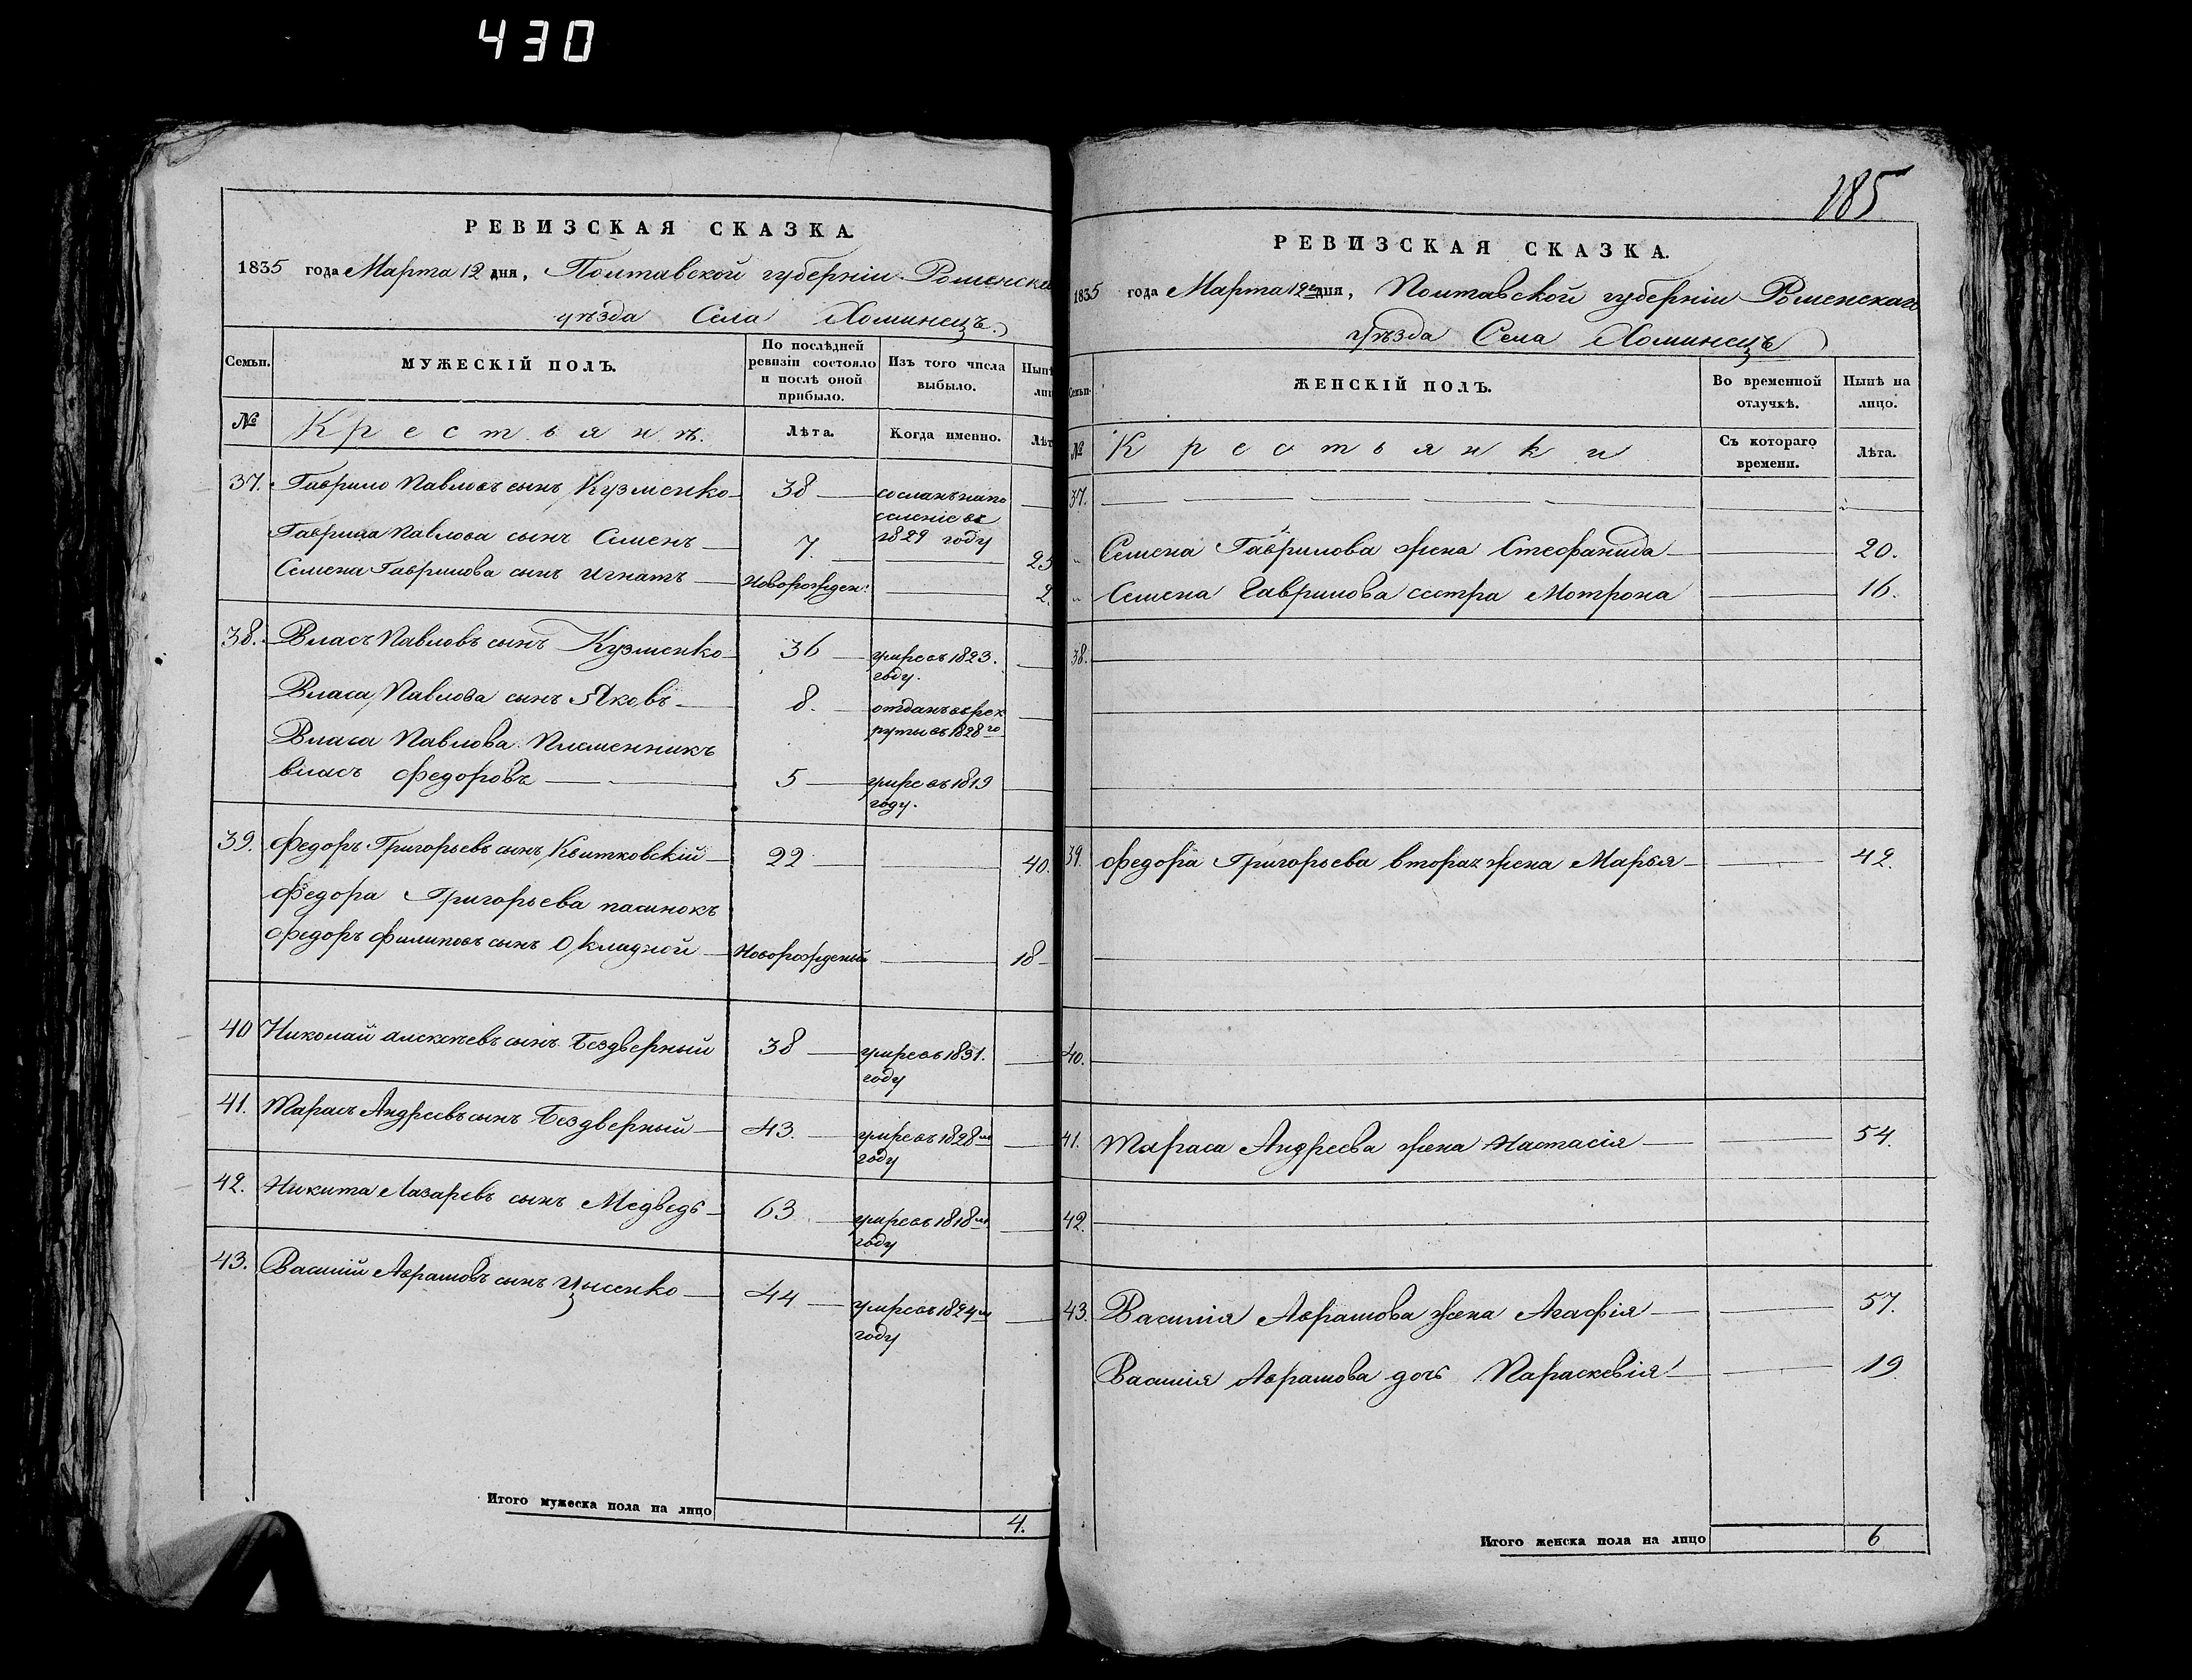 430
РЕВИЗСКАЯ СКАЗКА.
1835 года Марта 12 дня, Полтавской губерніи Роменска
уѣзда Села Хоминецъ.
Семьи.
МУЖЕСКІЙ ПОЛЪ.
По послѣдней ревизіи состояло и послѣ оной прибыло.
Изъ того числа выбыло.
Нынѣ лиц
№
Крестьянъ.
Лѣта.
Когда именно.
Лѣт
37. Гаврило Павловъ сынъ Кузменко 38 сосланъ на по
селеніе въ
1829 году
Гаврила Павлова сынъ Семенъ 7. 25
Семена Гаврилова сынъ Игнатъ Новорожден: 2.
38. Власъ Павловъ сынъ Кузменко 36 умре въ 1823.
году.
Власа Павлова сынъ Яковъ 8. отданъ въ рек
руты въ 1828 го
Власа Павлова Племенникъ
власъ Федоровъ 5 умре въ 1819
году.
39. Федоръ Григорьевъ сынъ Квитковскій 22 40.
Федора Григорьева пасинокъ
Федоръ Филиповъ сынъ Окладной Новорожденый 18
40 Николай алексѣевъ сынъ Бездверный 38 умре въ 1831.
году
41. Тарасъ Андреевъ сынъ Бездверный 43. умре въ 1828м
году
42. Никита Лазаревъ сынъ Медведь 63 умре въ 1818м
году
43. Василій Аврамовъ сынъ Цысенко 44 умре въ 1824м
году
Итого мужеска пола на лицо 4.
185
РЕВИЗСКАЯ СКАЗКА.
1835 года Марта 12 дня, Полтавской губерніи Роменскаго
уѣзда Села Хоминецъ
Семьи.
ЖЕНСКІЙ ПОЛЪ.
Во временной отлучкѣ.
Нынѣ на лицо.
№
Крестьянки
Съ котораго времени.
Лѣта.
37.
Семена Гаврилова жена Стефанида 20.
Семена Гаврилова сестра Мотрона 16.
38.
39. Федора Григорьева вторая жена Марья 42.
40.
41. Тараса Андреева жена Настасія 54.
42.
43. Василія Аврамова жена Агафія 57.
Василія Аврамова дочь Параскевія 19
Итого женска пола на лицо 6